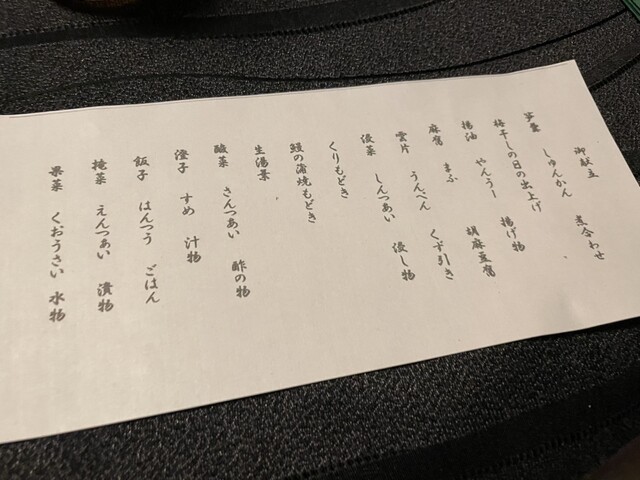 御献立
笋羹 しゅんかん 煮合わせ
梅干しの日の出上げ
揚油 やんうー 揚げ物
麻腐 まふ 胡麻豆腐
雲片 うんぺん くず引き
浸菜 しんつあい 浸し物
くりもどき
鰻の蒲焼もどき
生湯景
酸菜 さんつあい 酢の物
澄子 すめ 汁物
飯子 はんつう ごはん
掩菜 えんつあい 漬物
果菜 くおうさい 水物